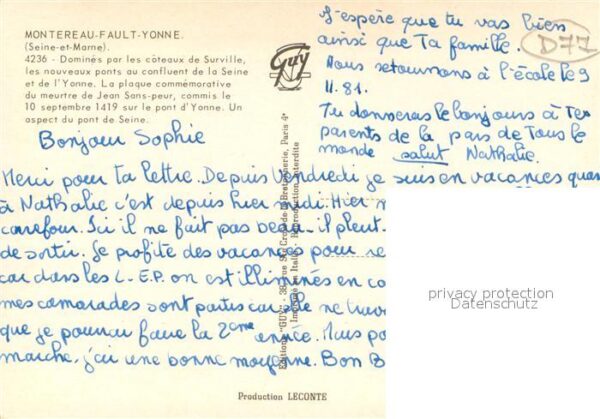 MONTEREAU-FAULT-YONNE.
(Seine-et-Marne).
4236 - Dominés par les côteaux de Surville,
les nouveaux ponts au confluent de la Seine
et de l'Yonne. La plaque commémorative
du meurtre de Jean Sans-peur, commis le
10 septembre 1419 sur le pont d'Yonne. Un
aspect du pont de Seine.
Guy
Bonjour Sophie
Merci pour ta lettre. Depuis Vendredi je suis en vacances quan
à Nathalie c'est depuis hier midi. Hier
carrefour. Ici il ne fait pas beau il pleut.
de sortir. Je profite des vacances pour re
car dans les L.E.P. on est illiminés en co
mes camarades sont partis car ne trav
que je pourrai faire la 2ème année. Mais po
marche, j'ai une bonne moyenne. Bon B
J'espère que tu vas bien
ainsi que Ta famille.
Nous retournons à l'école le 9
11.81.
Tu donneras le bonjours à Tes
parents de la pars de Tous le
monde salut Nathalie.
D77
Editions "GUY" - 38, rue Ste Croix de la Bretonnerie, Paris 4e
Imprimé en Italie - Reproduction interdite
Production LECONTE
privacy protection
Datenschutz